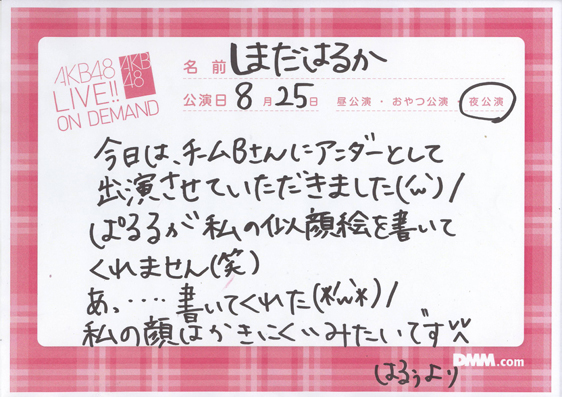 AKB48
LIVE!!
ON DEMAND
AKB
48
名前 しまだはるか
公演日 8月25日 昼公演・おやつ公演・夜公演
今日は、チームBさんにアンダーとして
出演させていただきました(´ω`)/
ぱるるが私の似顔絵を書いて
くれません(笑)
あっ‥‥書いてくれた(*´ω`*)/
私の顔はかきにくいみたいです^^
はるぅより
DMM.com